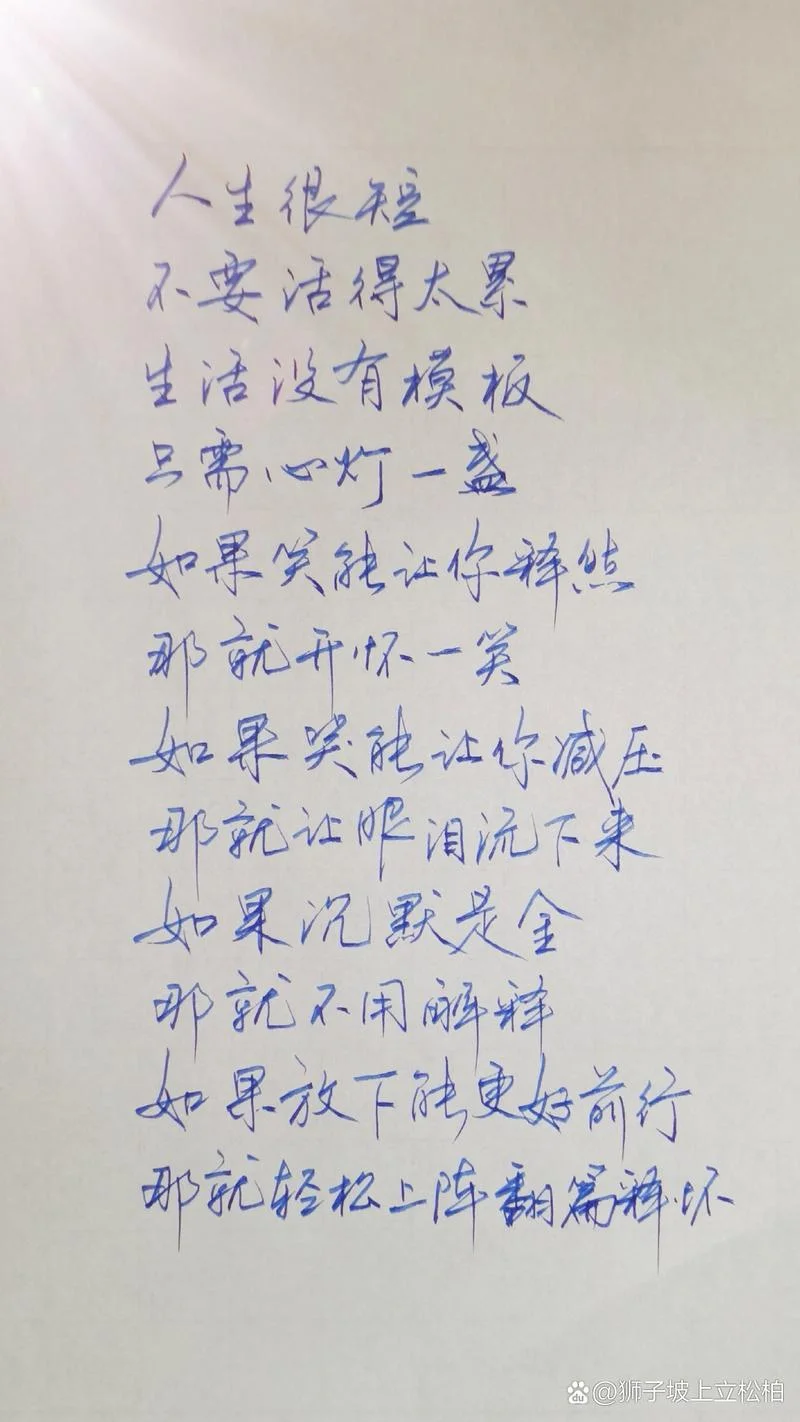 人生很短
不要活得太累
生活没有模板
只需心灯一盏
如果笑能让你释然
那就开怀一笑
如果哭能让你减压
那就让眼泪流下来
如果沉默是金
那就不用解释
如果放下能更好前行
那就轻松上阵翻篇释怀
du @狮子坡上立松柏